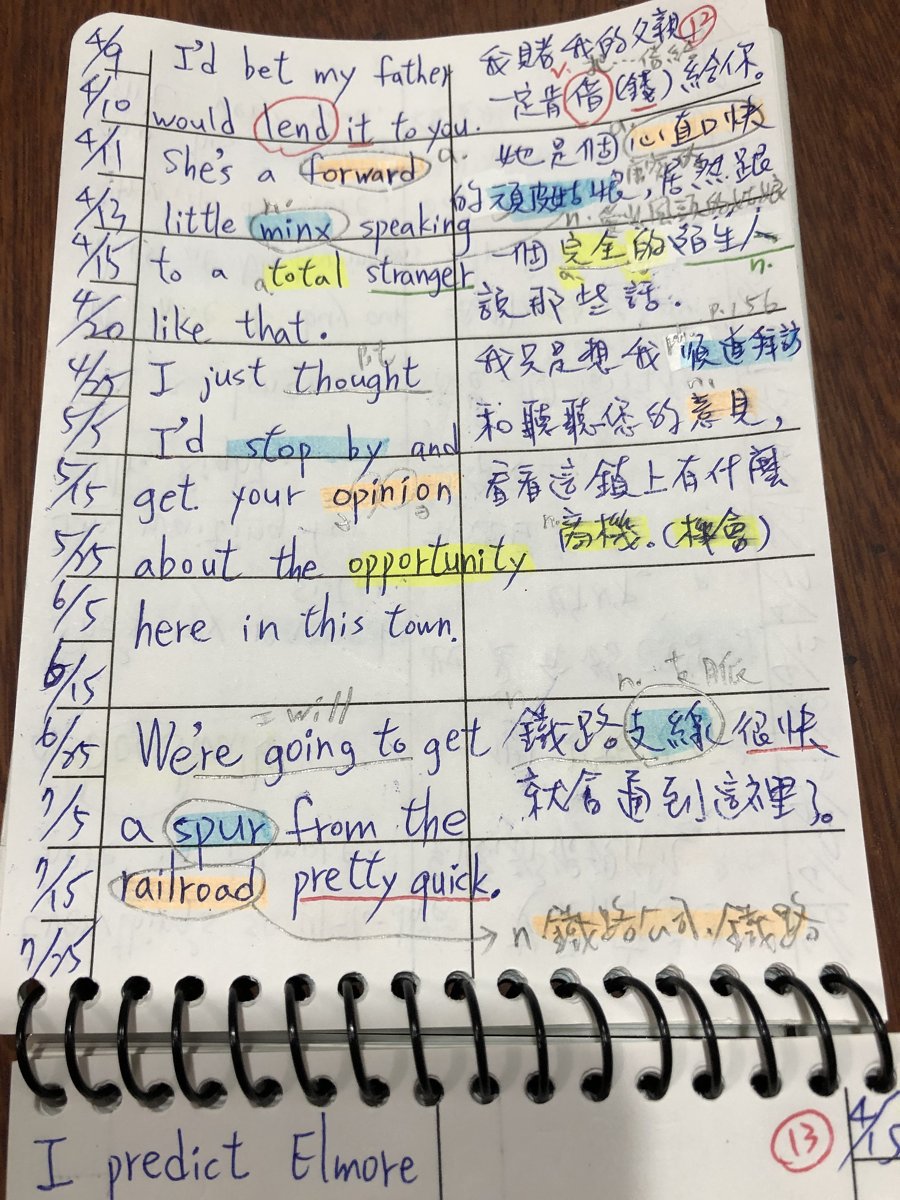 4/9
4/10
4/11
4/13
4/15
4/20
4/25
5/5
5/15
5/25
6/5
6/15
6/25
7/5
7/15
7/25
I'd bet my father
would lend it to you.
She's a forward a.
n.
little minx speaking
to a total stranger
a.
like that.
pt
I just thought
I'd stop by and
get your opinion
about the opportunity
here in this town.
I will
We're going to get
a spur from the
railroad pretty quick.
12
我賭我的父親
一定肯借(錢)給你。
a.
她是個心直口快
的頑皮姑娘,居然跟
n.
一個完全的陌生人
a. n.
說那些話.
p.156
我只是想我順道拜訪
n.
和聽聽您的意見,
看看這鎮上有什麼
n. 商機。(機會)
n. 支脈
鐵路。支線很快
就會通到這裡了。
n. 鐵路公司.鐵路
I predict Elmore
13
4/15